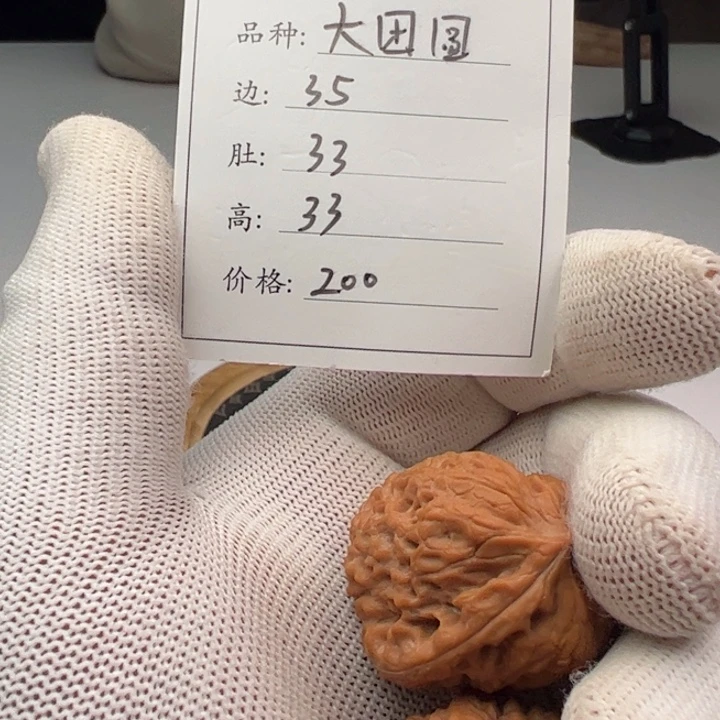 品种: 大团圆
边: 35
肚: 33
高: 33
价格: 200